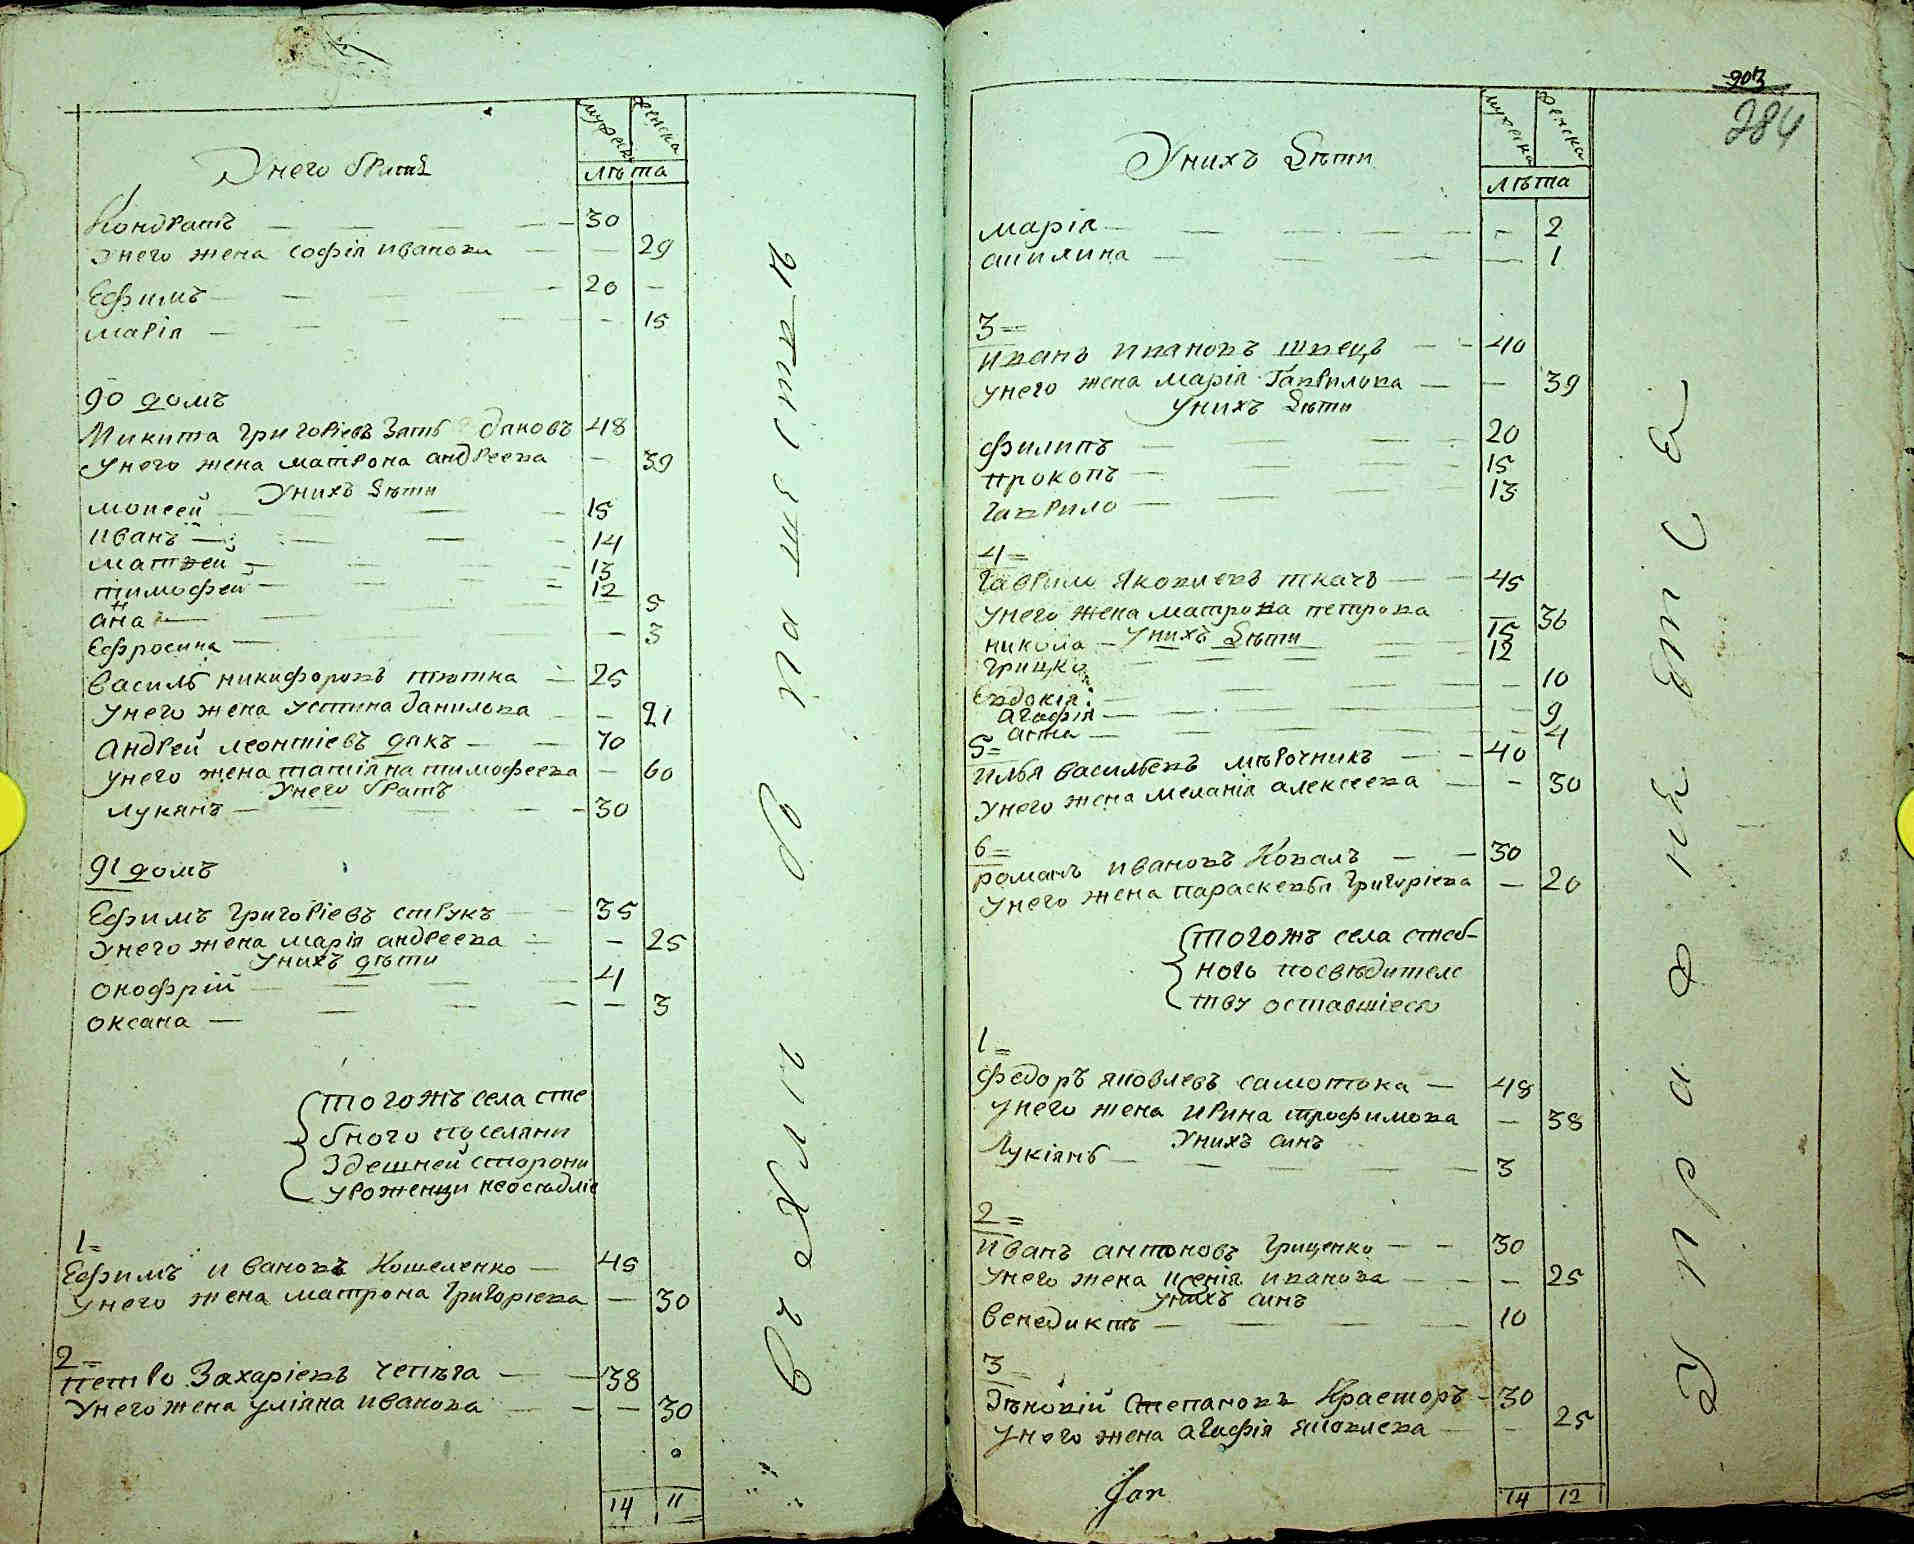 мужска женска
лѣта
Унего братѣ
Кондратъ — — — 30
Унего жена софія иванова — — 29
Ефимъ — — — 20 —
марія — — — — 15
90 домъ
Микита григоріевъ Зать даковъ 48
Унего жена матрона андреева — 39
Унихъ дѣти
моисей — — — 15
иванъ — — — 14
матвей — — — 13
тимофей — — — 12
анна — — — 5
Ефросина — — 3
василь никифоровъ тютка — 25
Унего жена устина данилова — — 21
андрей леонтіевъ дакъ — — 70
унего жена татіяна тимофеева — 60
Унего братъ
лукянъ — — — 30
91 домъ
Ефимъ григоріевъ струкъ — — 35
Унего жена марія андреева — — 25
Унихъ дѣти
онофрій — — — 4
оксана — — — — 3
тогожъ села сте
бного поселяни
Здешней сторони
уроженци неоседліе
1=
Ефимъ ивановъ Кошеленко — 45
Унего жена матрона григорієва — 30
2=
петро Захаріевъ чепѣга — — 38
Унего жена уліяна иванова — — — 30
14 11
903
284
мужска женска
лѣта
Унихъ дѣти
марія — — — — 2
акилина — — — — 1
3=
иванъ ивановъ швецъ — — 40
унего жена марія гаврилова — — 39
унихъ дѣти
филипъ — — — 20
прокопъ — — — 15
гаврило — — — 13
4=
гаврило яковлевъ ткачъ — — 45
унего жена матрона петрова — 36
унихъ дѣти
никола — 15
грицко — — — 12
Евдокія — — — 10
агафія — — — 9
анна — — — 4
5=
илья васильевъ мѣрочникъ — — 40
Унего жена меланія алексеева — — 30
6=
романъ ивановъ Ковалъ — — 30
унего жена параскевія григорієва — 20
тогожъ села стеб-
ного посвѣдителс
тву оставшіеся
1=
федоръ яковлевъ самотока — 48
унего жена ирина трофимова — 38
Унихъ синъ
Лукіянъ — — — 3
2=
иванъ антоновъ гриценко — — 30
унего жена ксенія иванова — — — 25
унихъ синъ
венедиктъ — — — 10
3=
Зѣновій степановъ Красторъ — 30
унего жена агафія яковлева — — 25
14 12